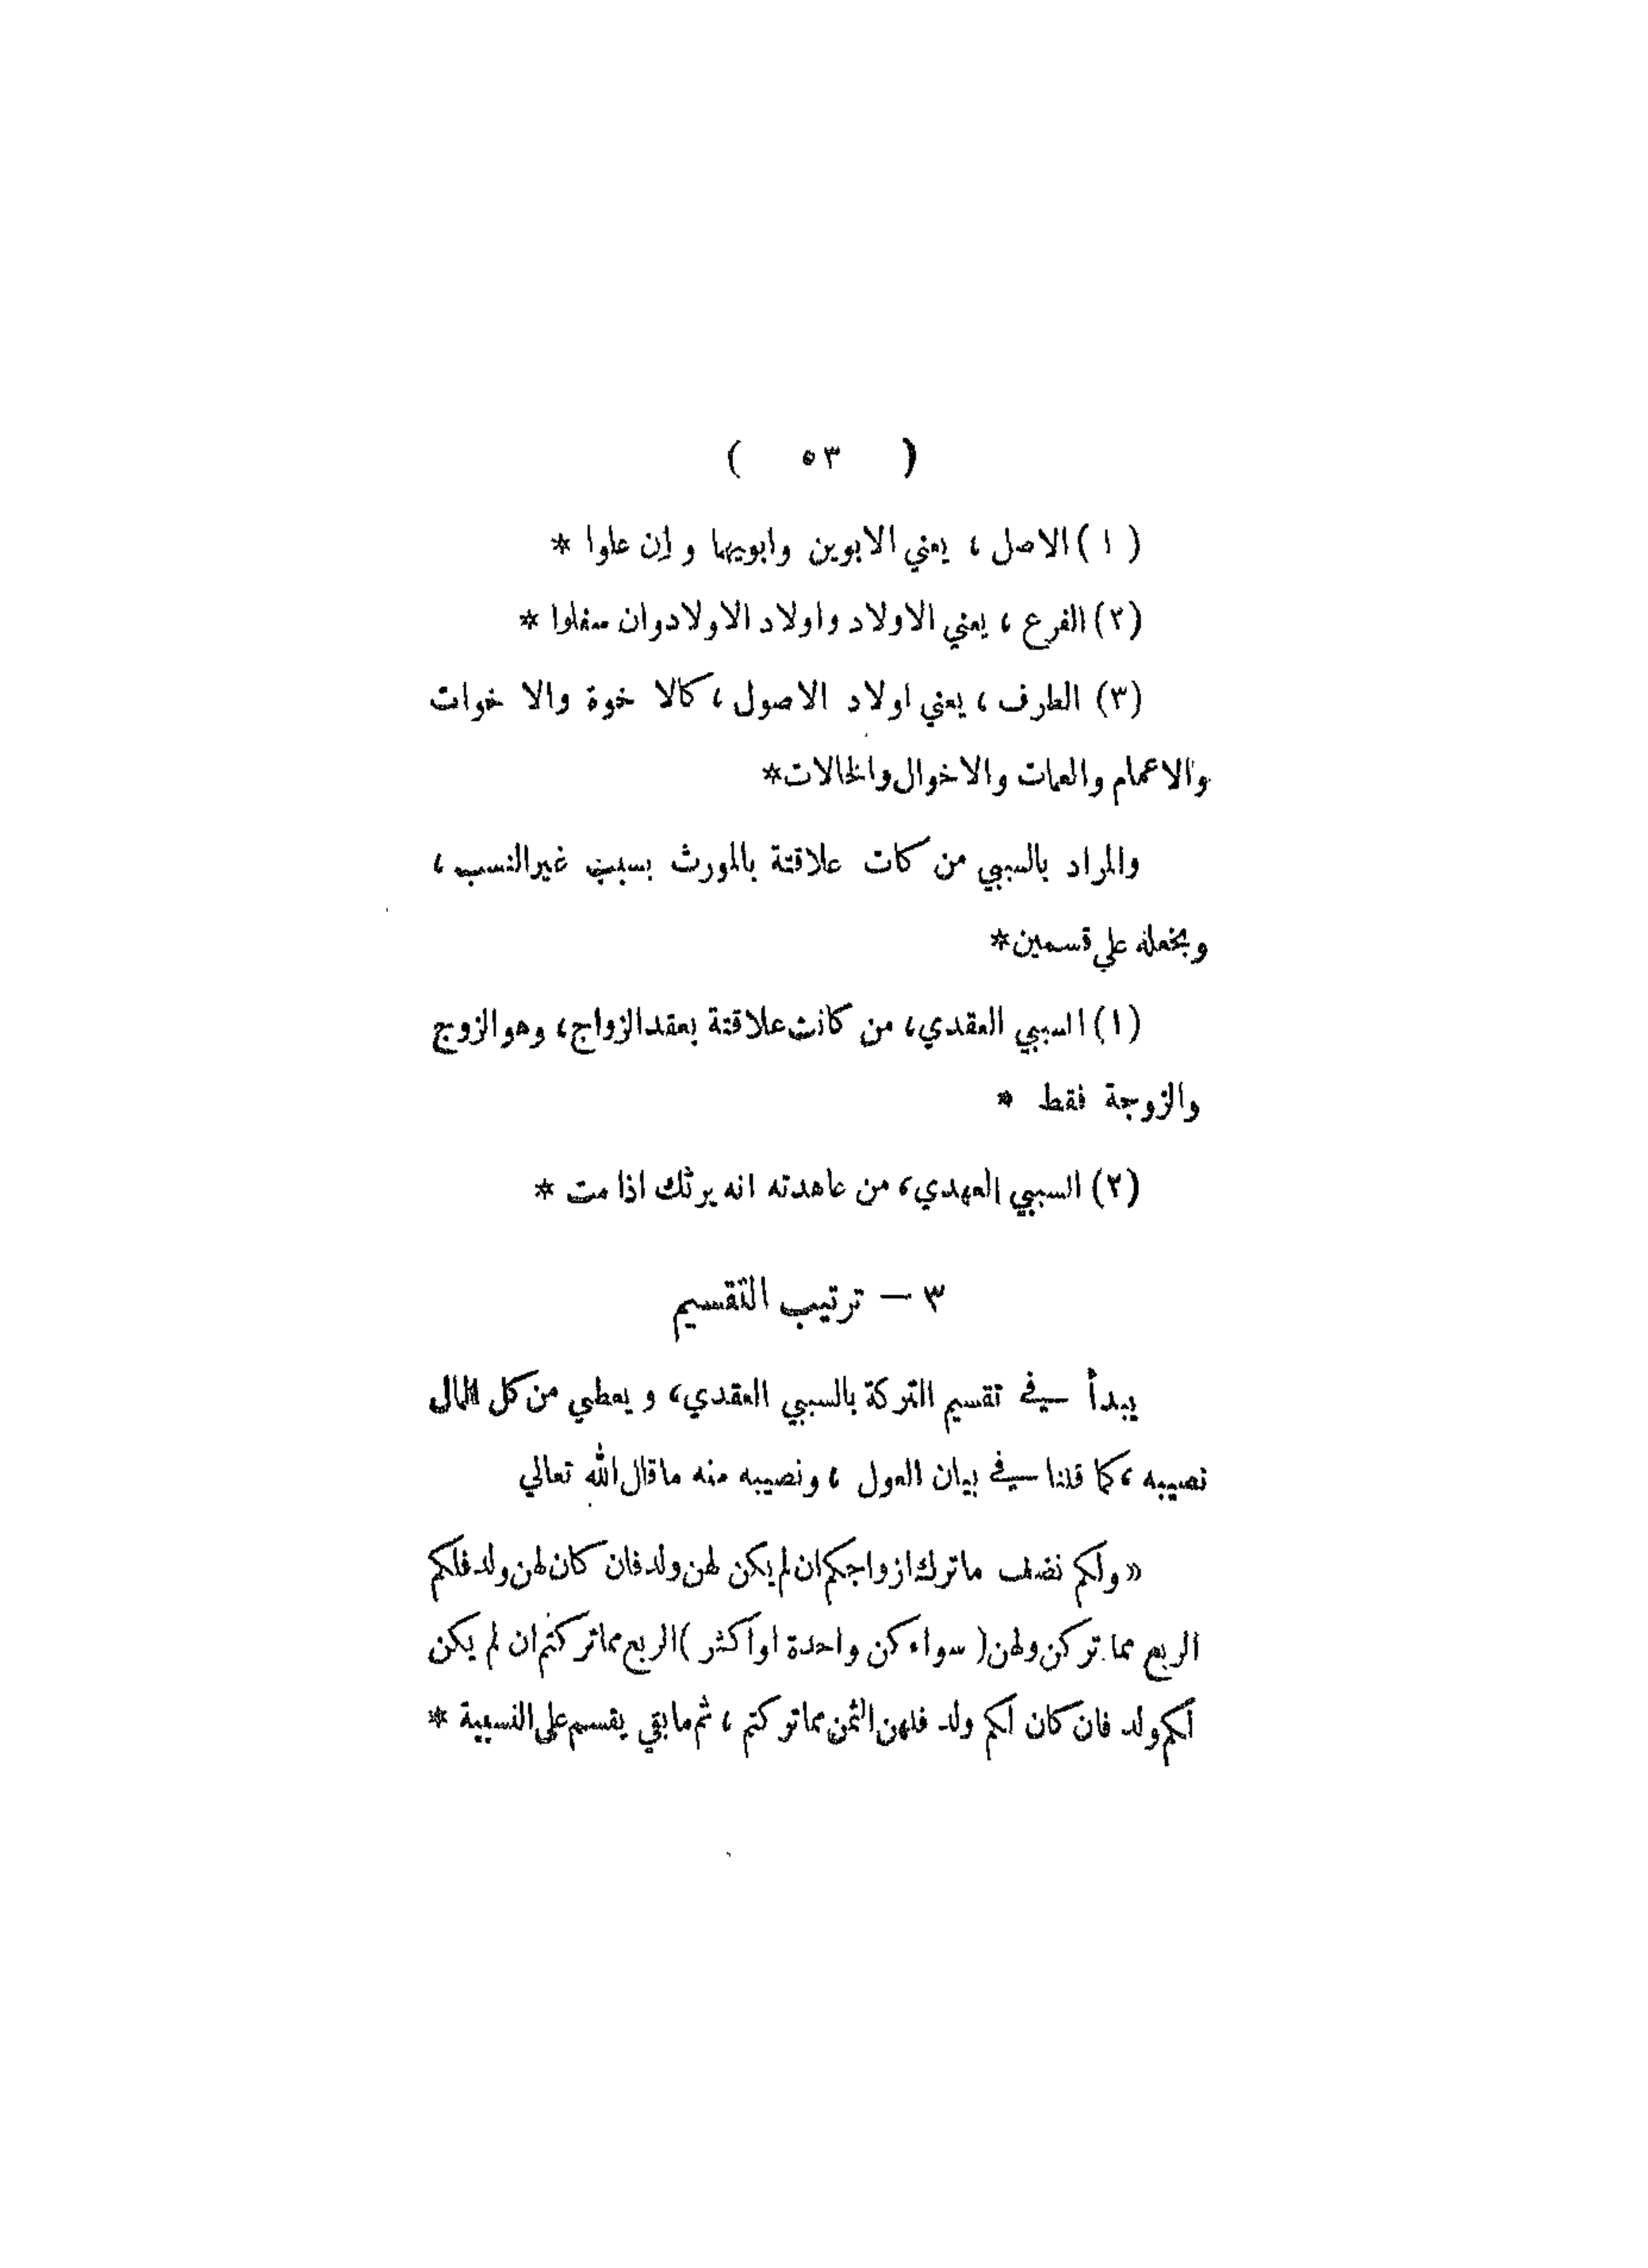 ( ٥٣ )
(١) الاصل ، يعني الابوين وابويهما و إن علوا *
(٢) الفرع ، يعني الاولاد واولاد الاولاد وان سفلوا *
(٣) الطرف ، يعني اولاد الاصول ، كالا خوة والا خوات
والاعمام والعمات والاخوال والخالات *
والمراد بالسببي من كات علاقتة بالمورث بسبب غير النسب ،
وبخعله علي قسمين *
(١) السببي العقدي ، من كانت علاقتة بعقد الزواج ، وهو الزوج
والزوجة فقط *
(٢) السببي العهدي ، من عاهدته انه يرثك اذا مت *
٣ — ترتيب التقسيم
يبدأ في تقسيم التركة بالسببي العقدي ، و يعطي من كل المال
نصيبه ، كما قلنا في بيان العول ، ونصيبه منه ما قال الله تعالي
« ولكم نصف ما ترك ازواجكم ان لم يكن لهن ولد فان كان لهن ولد فلكم
الربع مما تركن ولهن ( سواء كن واحدة او اكثر ) الربع مما تركتم ان لم يكن
لكم ولد فان كان لكم ولد فلهن الثمن مما تركتم ، ثم ما بقي يقسم علي النسبية *